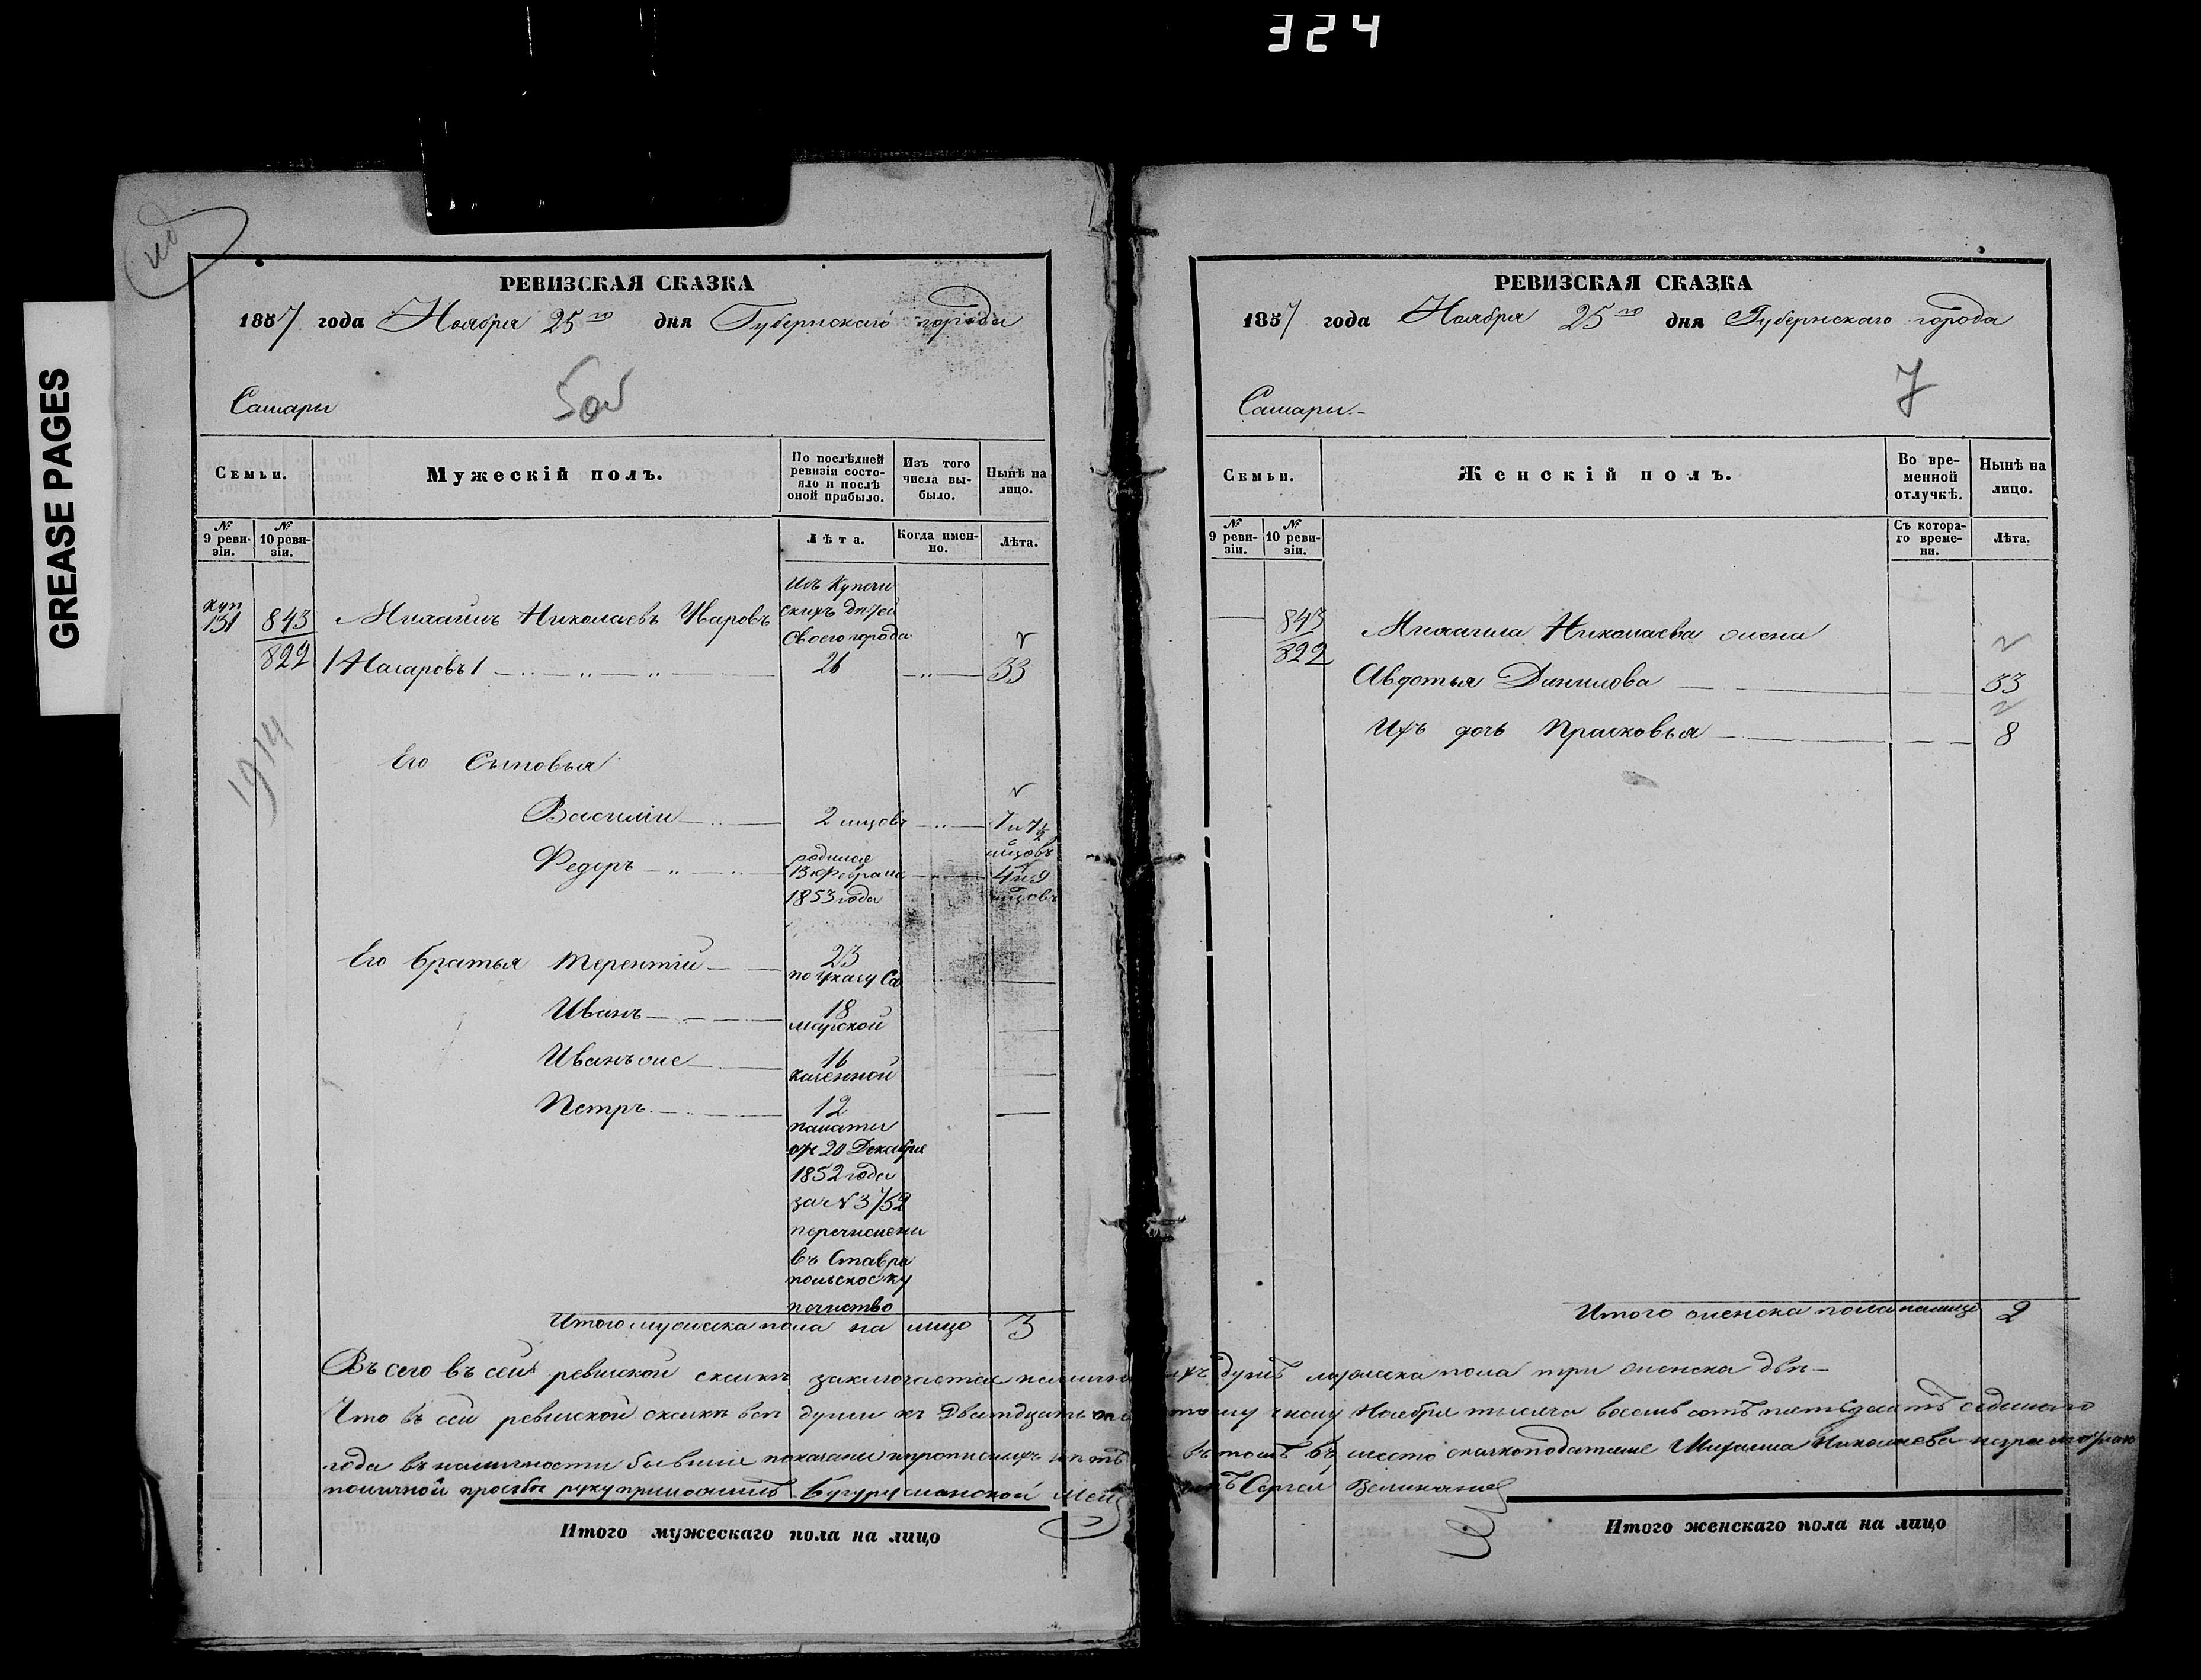 324
GREASE PAGES
РЕВИЗСКАЯ СКАЗКА
1857 года Ноября 25го дня Губернскаго города
Самары
Семьи.
Мужескій полъ.
По послѣдней ревизіи состояло и послѣ оной прибыло.
Изъ того числа выбыло.
Нынѣ на лицо.
№ 9 ревизіи.
№ 10 ревизіи.
Лѣта.
Когда именно.
Лѣта.
Изъ Купече
скихъ дѣтей
куп
131 843 Михаилъ Николаевъ Уваровъ своего города
822 /Назаровъ/ 26 33
1914
Его Сыновья
Василій 2 мцовъ 7 и 7½ мцовъ
Федоръ родился 13 Февраля 1853 года 4 и 9 мцовъ
Его братья Терентій 23
по Указу Са
Иванъ 18
марской
Иванъ же 16
казенной
Петръ 12
палаты
отъ 20 Декабря
1852 года
за №3752
перечислены
въ Ставро
польское ку
печество
Итого мужеска пола на лицо 3
РЕВИЗСКАЯ СКАЗКА
1857 года Ноября 25го дня Губернскаго города
7
Самары.
Семьи.
Женскій полъ.
Во временной отлучкѣ.
Нынѣ на лицо.
№ 9 ревизіи.
№ 10 ревизіи.
Съ котораго времени.
Лѣта.
843 Михаила Николаева жена
822
Авдотья Данилова 33
Ихъ дочь Прасковья 8
Итого женска пола налицо 2
Всего въ сей ревизской сказкѣ заключается наличныхъ душъ мужеска пола три женска двѣ
Что въ сей ревизской сказкѣ всѣ души къ Двадцать тому числу Ноября тысяча восемь сотъ пятьдесятъ седьмаго
года въ наличности бывшіе показаны и прописныхъ нѣтъ въ томъ въ место сказкоподателя Михаила Николаева
поличной просьбѣ руку приложилъ Бугурусланской Сергей
Итого мужескаго пола на лицо
Итого женскаго пола на лицо